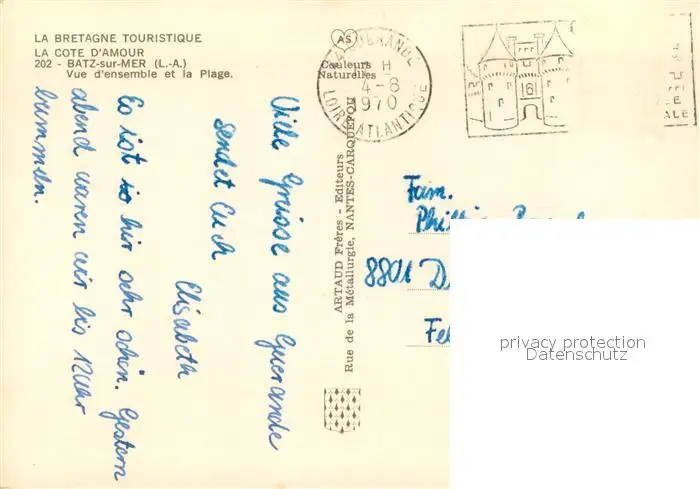 LA BRETAGNE TOURISTIQUE
LA COTE D'AMOUR
202 - BATZ-sur-MER (L.-A.)
Vue d'ensemble et la Plage.
AS
Couleurs
Naturelles
GUERANDE
H
4-8
1970
LOIRE ATLANTIQUE
ARTAUD Frères - Editeurs
Rue de la Métallurgie, NANTES-CARQUEFOU
Viele Grüsse aus Guerande
sendet Euch
Elisabeth
Es ist hir sehr schön. Gestern
abend waren wir bis 12 Uhr
Fam.
8801 D
Fel
privacy protection
Datenschutz